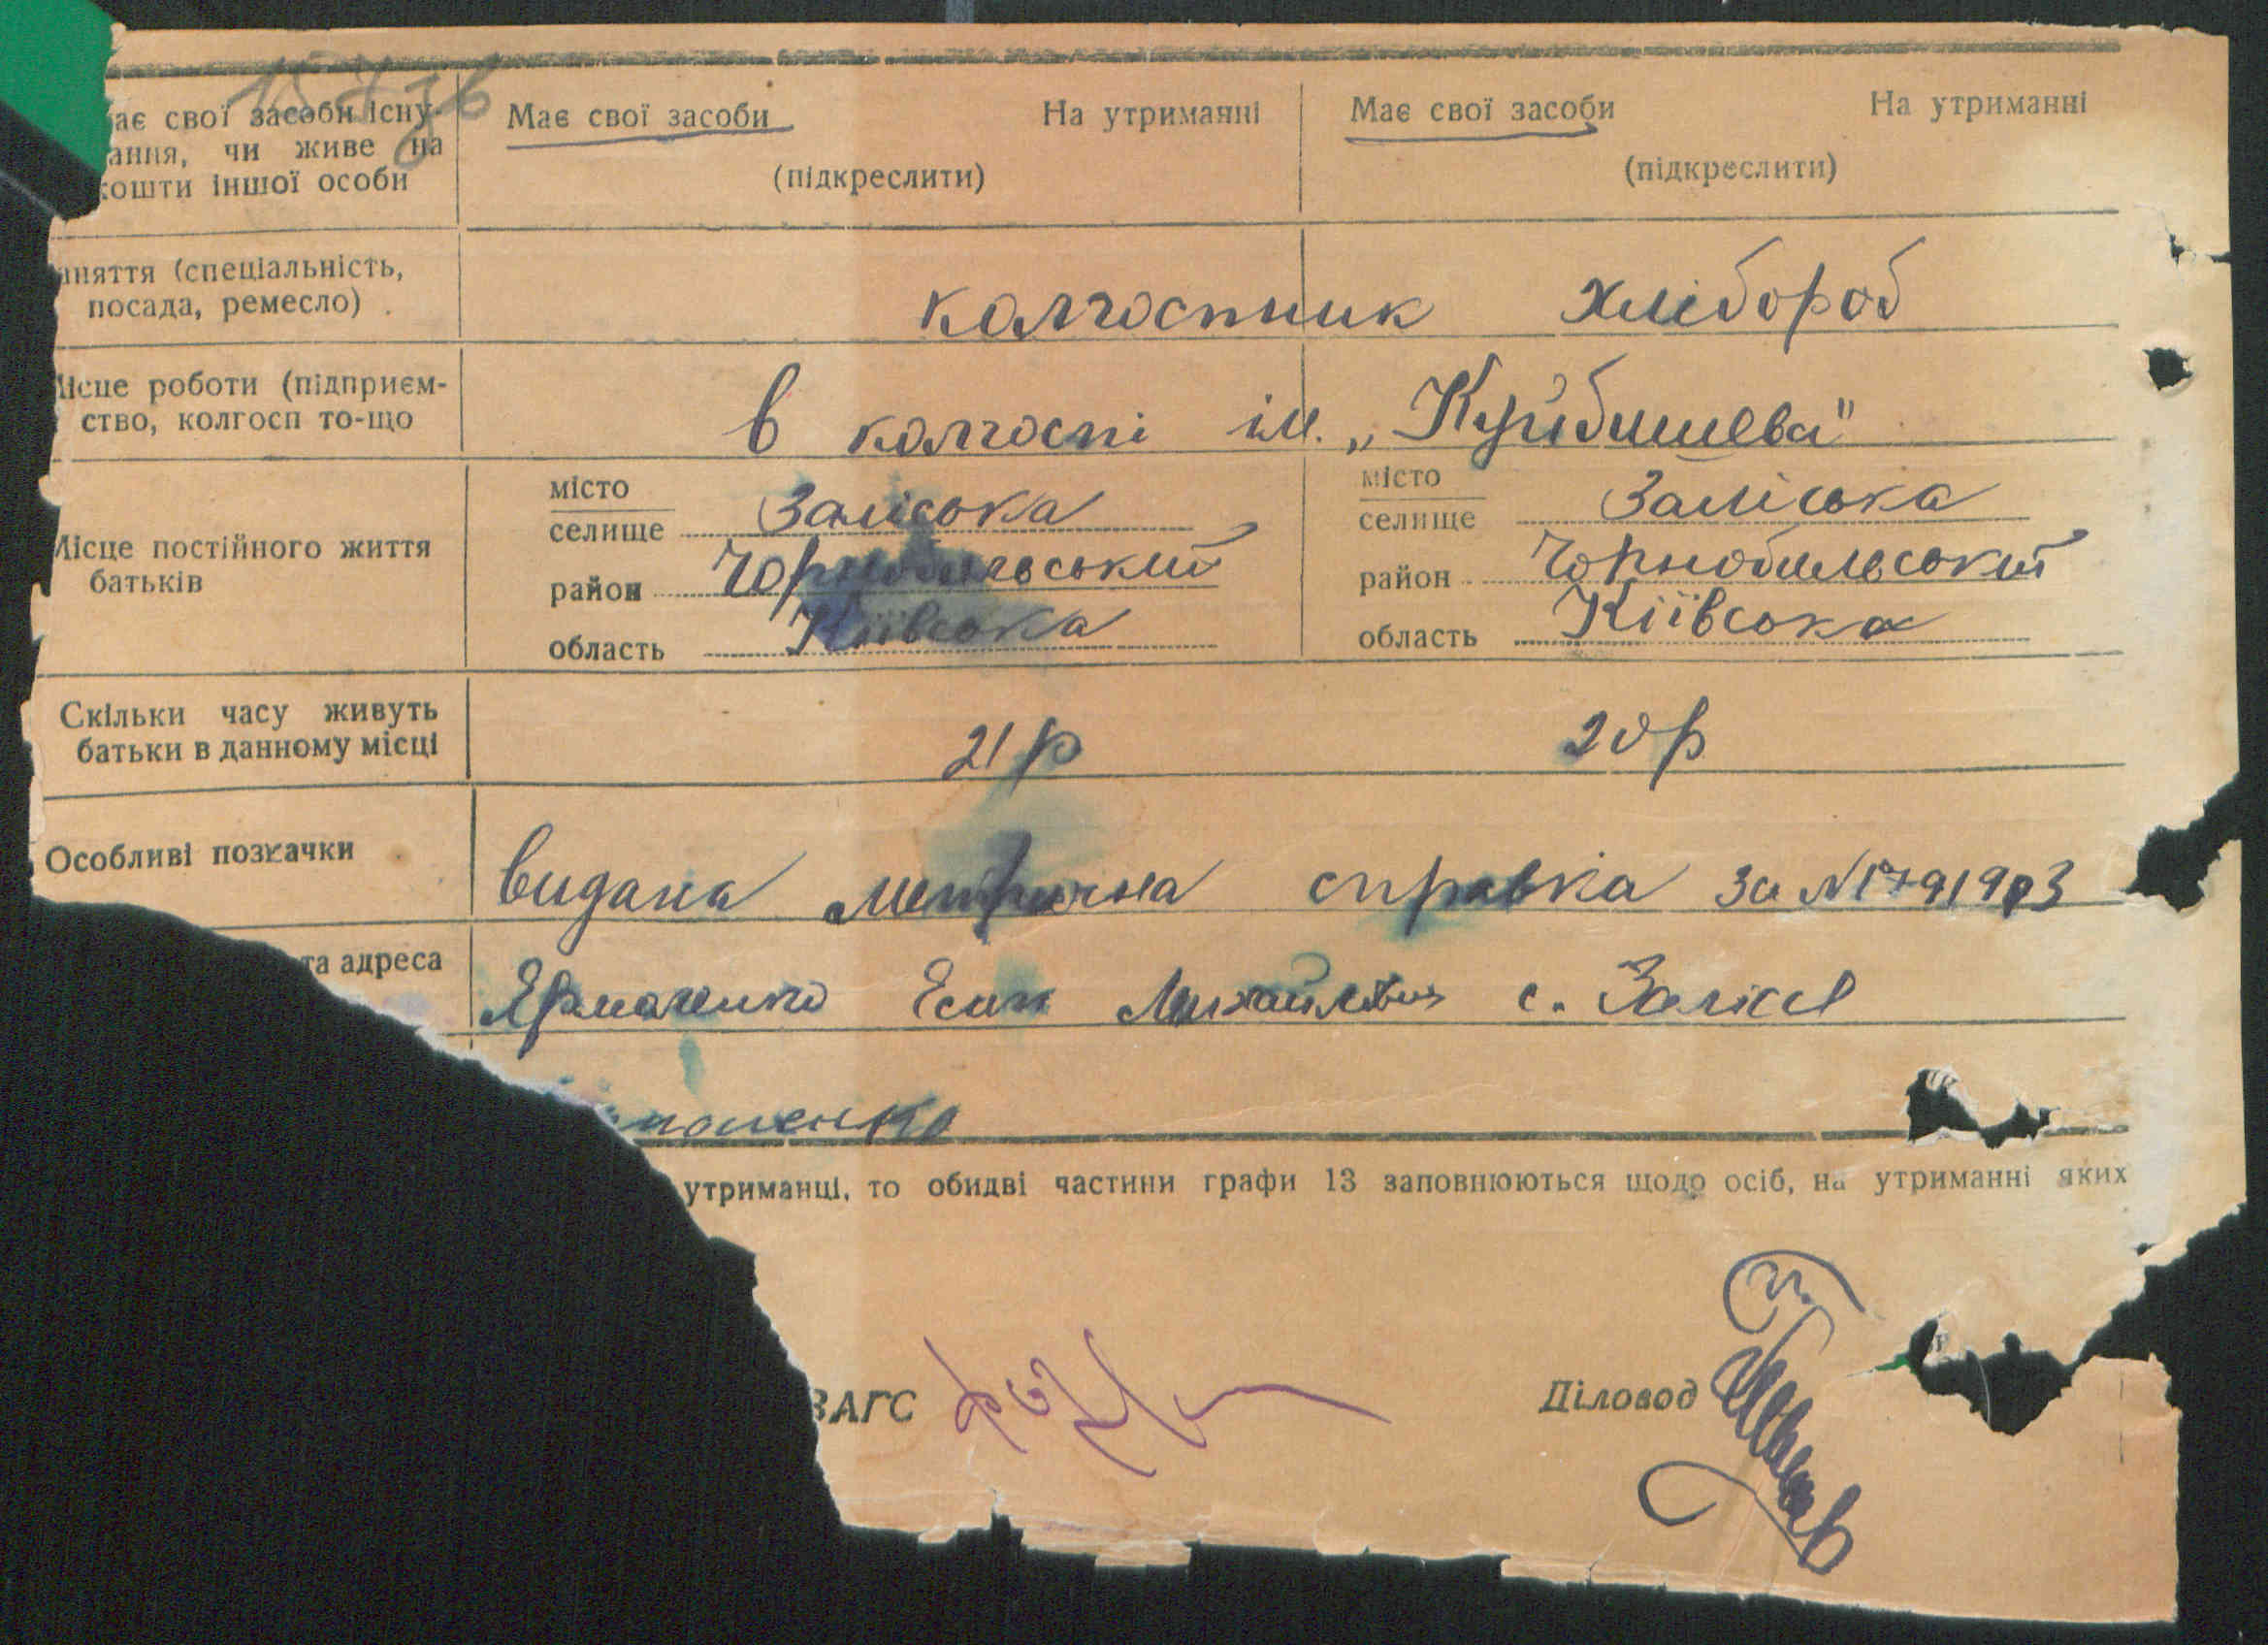 ає свої засоби існу-
ання, чи живе на
кошти іншої особи
Має свої засоби На утриманні
(підкреслити)
Має свої засоби На утриманні
(підкреслити)
няття (спеціальність,
посада, ремесло)
колгоспник хлібороб
Місце роботи (підприєм-
ство, колгосп то-що
в колгоспі ім. „Куйбишева"
Місце постійного життя
батьків
місто
селище Заліська
район Чорнобильський
область Київська
місто
селище Заліська
район Чорнобильський
область Київська
Скільки часу живуть
батьки в данному місці
21 р
20 р
Особливі позначки
видана метрична справка за №
та адреса
Михайлович с. Залісся
утриманці, то обидві частини графи 13 заповнюються щодо осіб, на утриманні яких
ЗАГС
Діловод